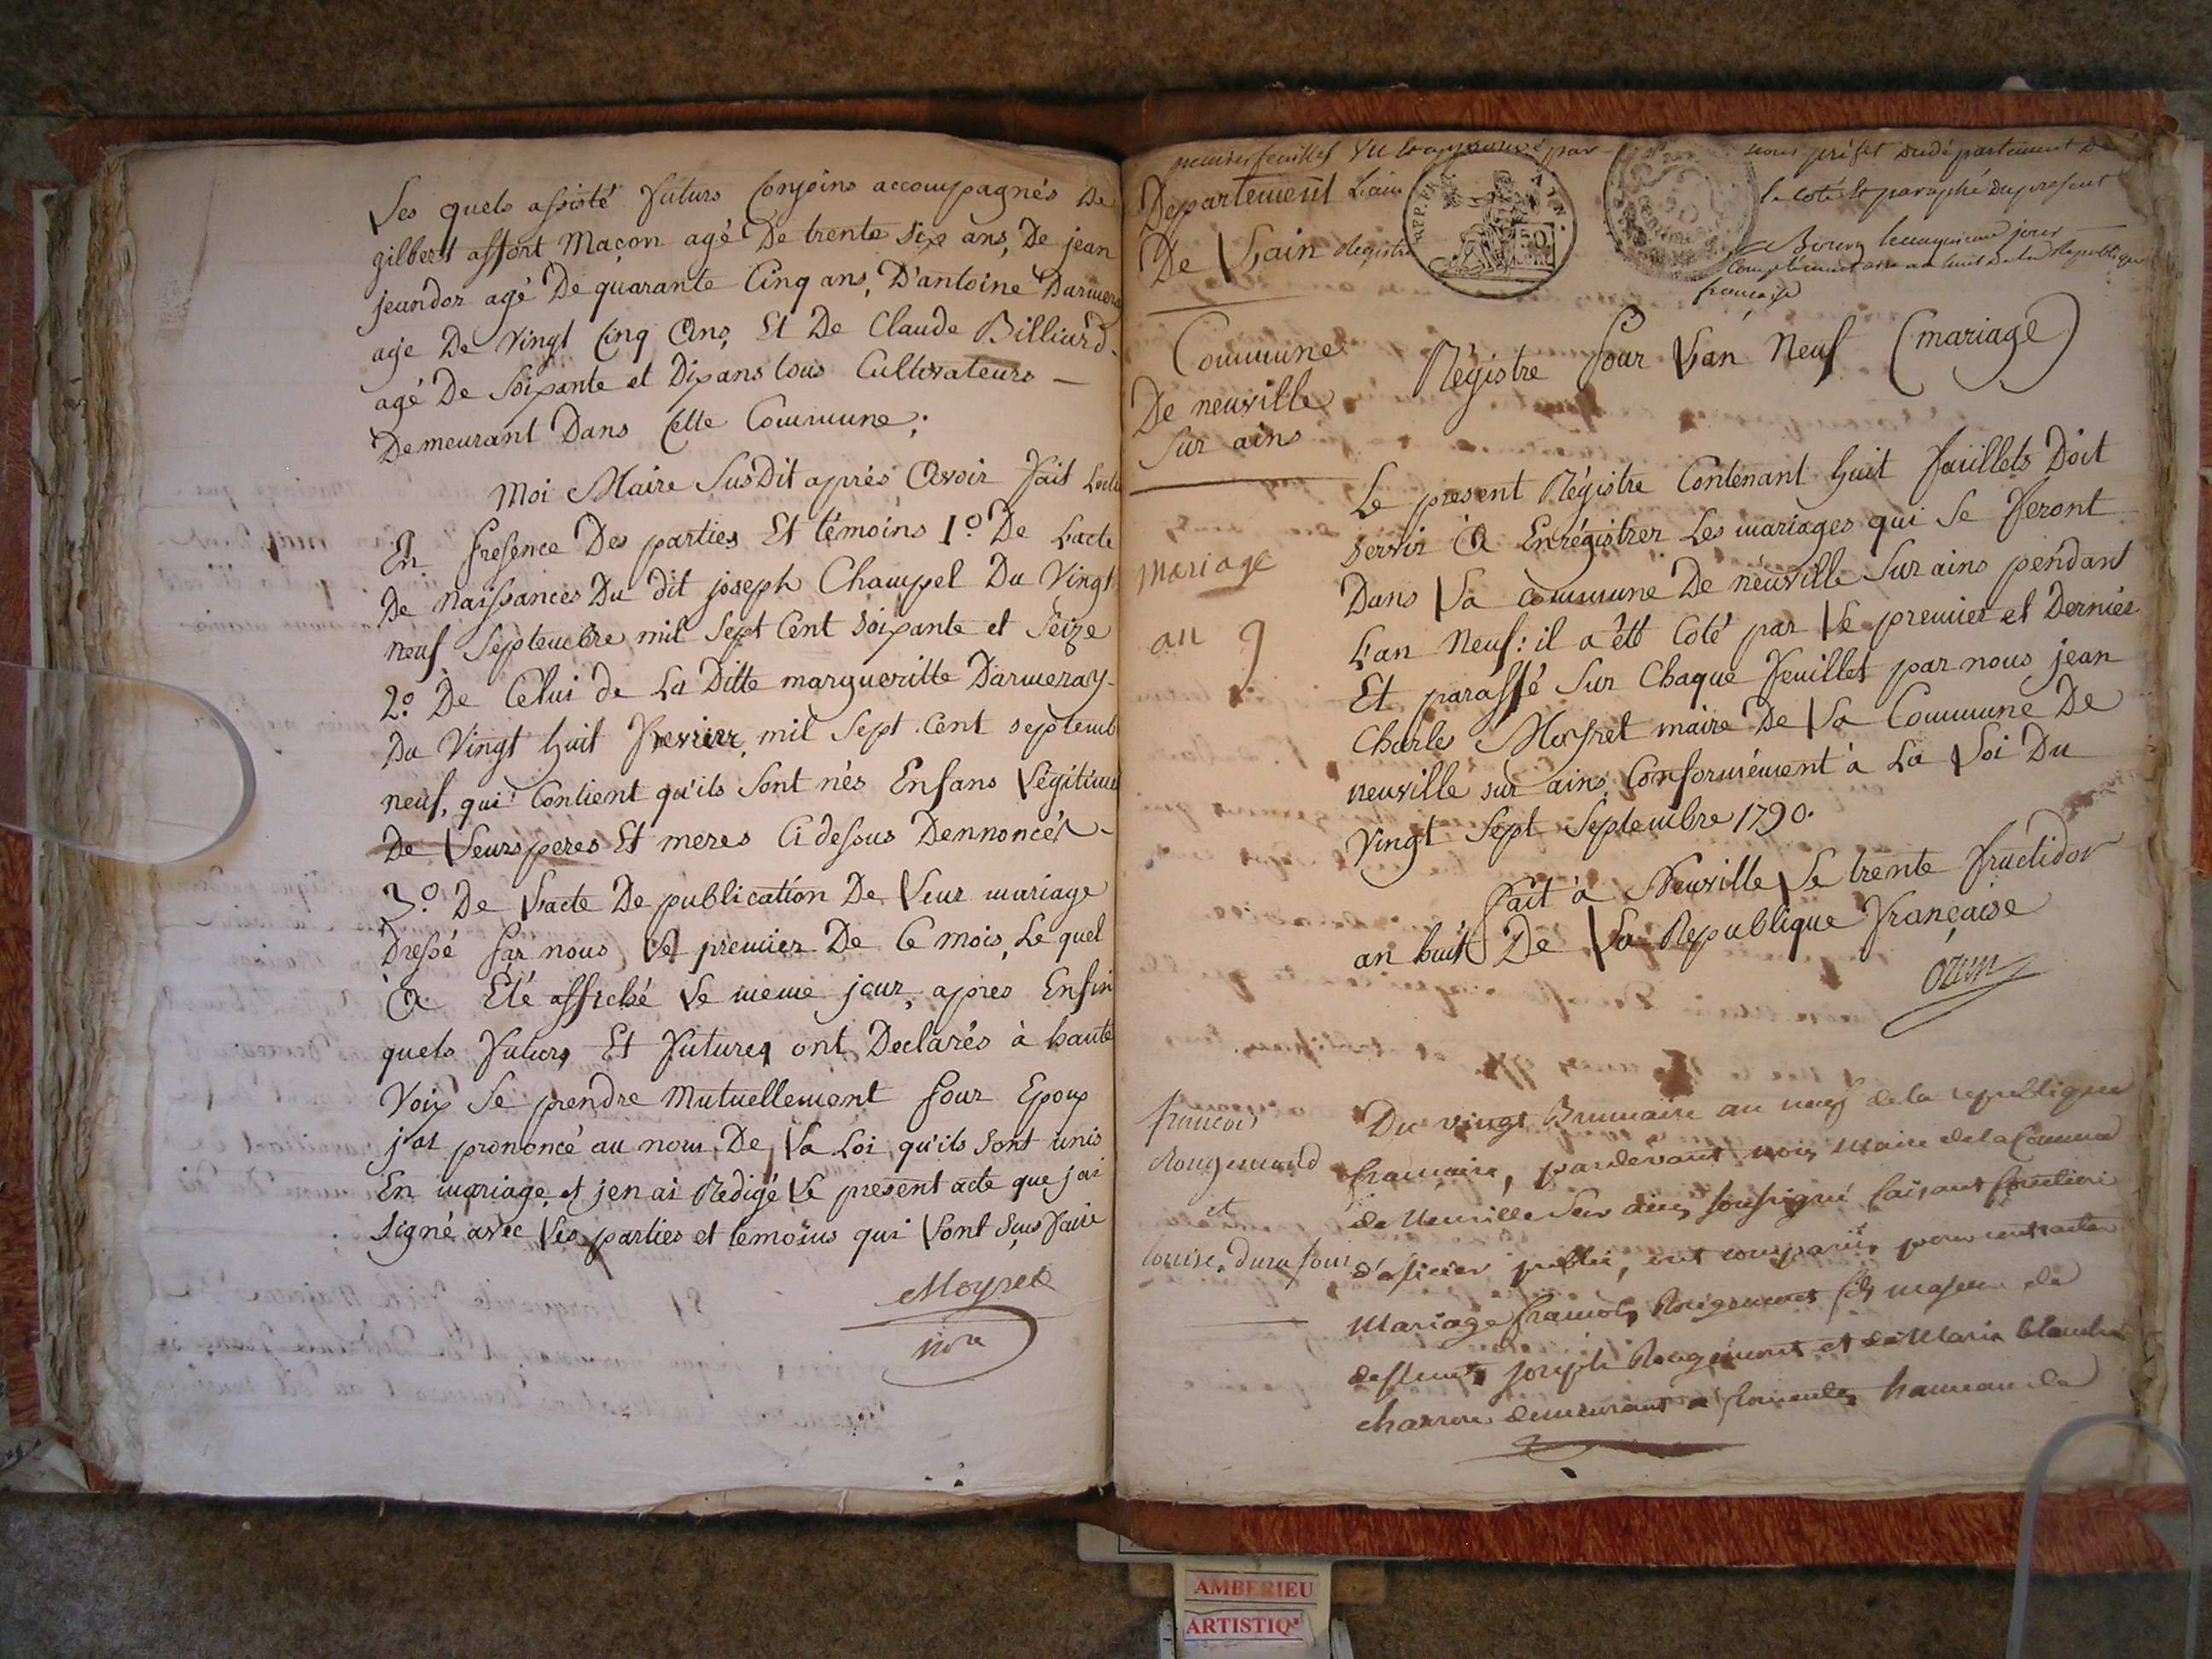 Les quels assisté futurs Conjoins accompagnés De
gilbert assort Maçon agé De trente Six ans, De jean
jeandor agé De quarante Cinq ans, D'antoine Darmeray
age De Vingt Cinq Ans, Et De Claude Billiard
agé De Soixante et Dix ans tous Cultivateurs
Demeurant Dans Cette Commune;
Moi Maire SusDit aprés Avoir fait Lectu
En presence Des parties Et témoins 1º De L'acte
De naissances Du dit joseph Champel Du Vingt
neuf Septembre mil Sept Cent Soixante et Seize
2º De Celui de La Ditte margueritte Darmeray
Du Vingt huit fevrier mil Sept Cent septemb
neuf, qui Contient qu'ils Sont nés Enfans Légitimes
De Leurs peres Et meres Ci dessus Dennoncés
3º De L'acte De publication De Leur mariage
Dressé par nous Le premier De Ce mois, Le quel
A Eté affiché Le meme jour, aprés Enfin
quels futurs Et futures ont Declarés à haute
Voix Se prendre Mutuellement pour Epoux
j'ai prononcé au nom De La Loi qu'ils Sont unis
En mariage et j'en ai Redigé Le present acte que j'ai
Signé avec Les parties et temoins qui L'ont Sçus faire
Moyret
mre
feuillet Vu par nous préfet du département De
L'ain le coté & paraphé du present
Registre Bourg le cinquieme jour
Complémentaire an huit De la Republique
française
REP. FRA.
Departement
De L'ain
Commune
De neuville
Sur ains
Régistre pour L'an Neuf (mariage)
mariage
an 9
Le present Régistre Contenant huit feuillets Doit
servir A Enrégistrer Les mariages qui Se feront
Dans La commune De neuville Sur ains pendant
L'an Neuf: il a été Coté par Le premier et Dernier
Et paraffé Sur Chaque feuillet par nous jean
Charles Moyret maire De La Commune De
neuville sur ains, Conformément à La Loi Du
Vingt Sept Septembre 1790.
fait à Neuville Le trente fructidor
an huit De La Republique française
françois
Rougemond
et
louise dura four
Du vingt Brumaire an neuf de la republique
française, pardevant moi Maire de la Commune
de Neuville Sur ains soussigné faisant fonction
d'oficier public, ont comparus pour contracter
Mariage francois Rougemont fils majeur de
deffunts joseph Rougemont et de Marie
charron demeurant a hameau de
AMBERIEU
ARTISTIQ